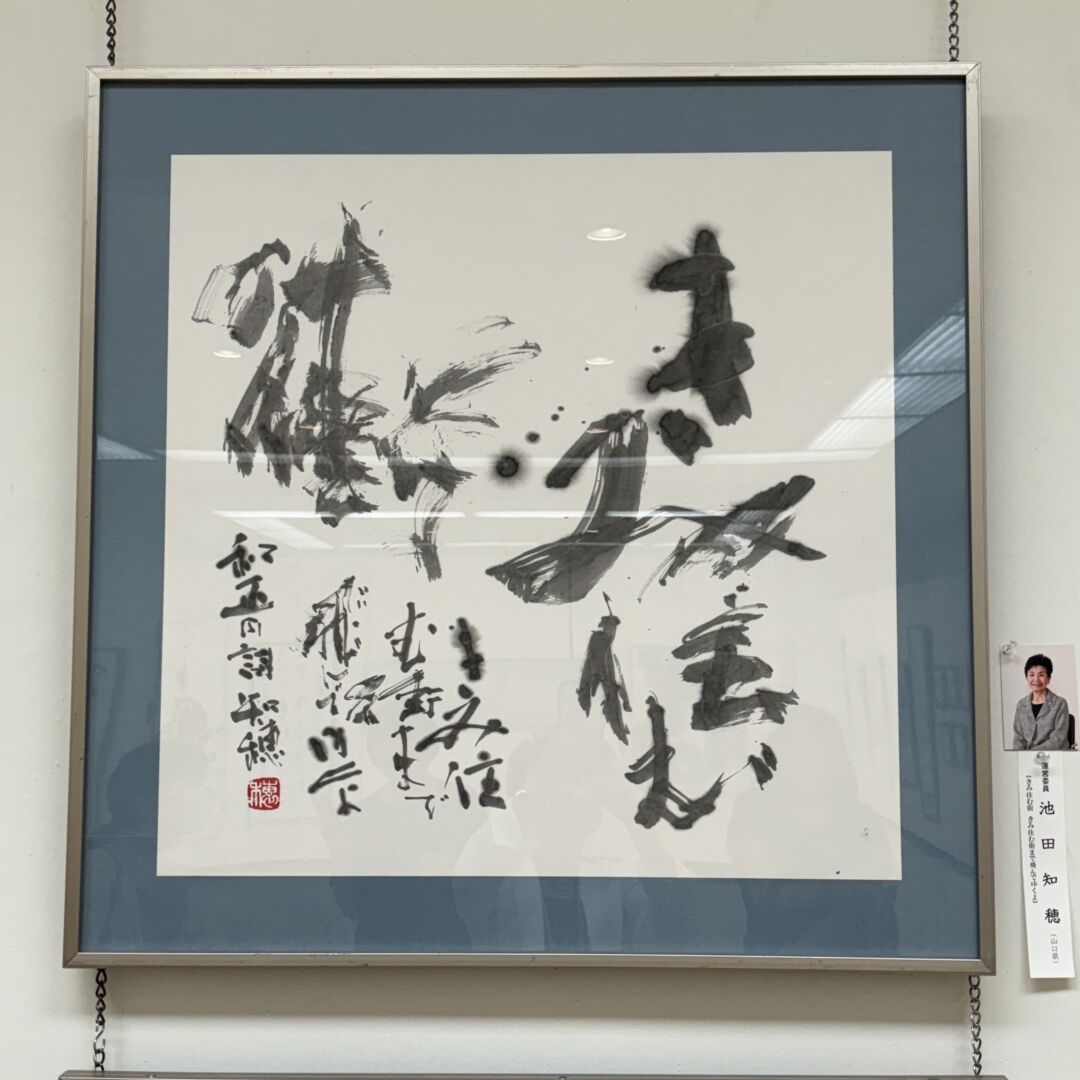 きみ
住む
街
きみ住
む街まで
飛んでゆくよ
和正 詞 知穂
穂
運営委員 池田知穂（山口県）
《きみ住む街 きみ住む街まで飛んでゆくよ》